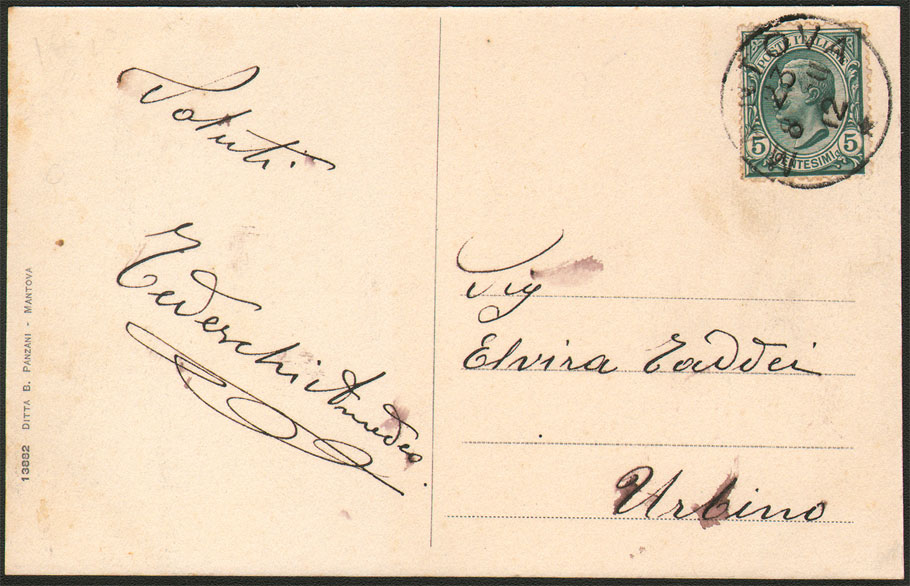 Saluti
Tedeschi Amedeo
Sig
Elvira Taddei
Urbino
POSTE ITALIANE
5 CENTESIMI 5
8
23
12
13882 DITTA B. PANZANI - MANTOVA